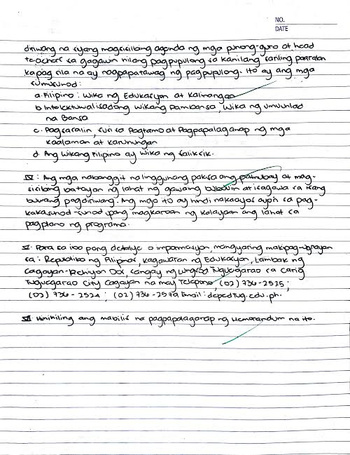 NO.
DATE
dniwang na siyang magsisilbing agenda ng mga punong-guro at head
teachers sa gagawin nilang pagpupulong sa kanilang sariling paaralan
kapag sila na ay nagpapatawag ng pagpupulong. Ito ay ang mga
sumusunod:
a. Filipino: Wika ng Edukasyon at Kalinangan
b. Intelektuwalisadong Wikang Pambansa, Wika ng umuunlad
na Bansa
c. Pagsasalin, susi sa Pagtamo at Pagpapalaganap ng mga
kaalaman at karunungan
d. Ang Wikang Filipino ay Wika ng Saliksik.
IV. Ang mga nabanggit na lingguhang paksa ang patnubay at mag-
silbing batayan ng lahat ng gawaing bubuuin at isagawa sa isang
buwang pagdiriwang. Ang mga ito ay hindi nakaayos ayon sa pag-
kakasunod-sunod upang magkaroon ng kalayaan ang lahat sa
pagplano ng programa.
V. Para sa iba pang detalye o impormasyon mangyaring makipag-ugnayan
sa: Republika ng Pilipinas, Kagawaran ng Edukasyon, Lambak ng
Cagayan-Rehiyon 02, Sangay ng Lungsod Tuguegarao sa Carig
Tuguegarao City Cagayan na may Telepono, (02) 736-2525;
(02) 736-2524; (02) 736-2519 Email: deped@tug.edu.ph.
VI. Hinihiling ang mabilis na pagpapalaganap ng Memorandum na ito.